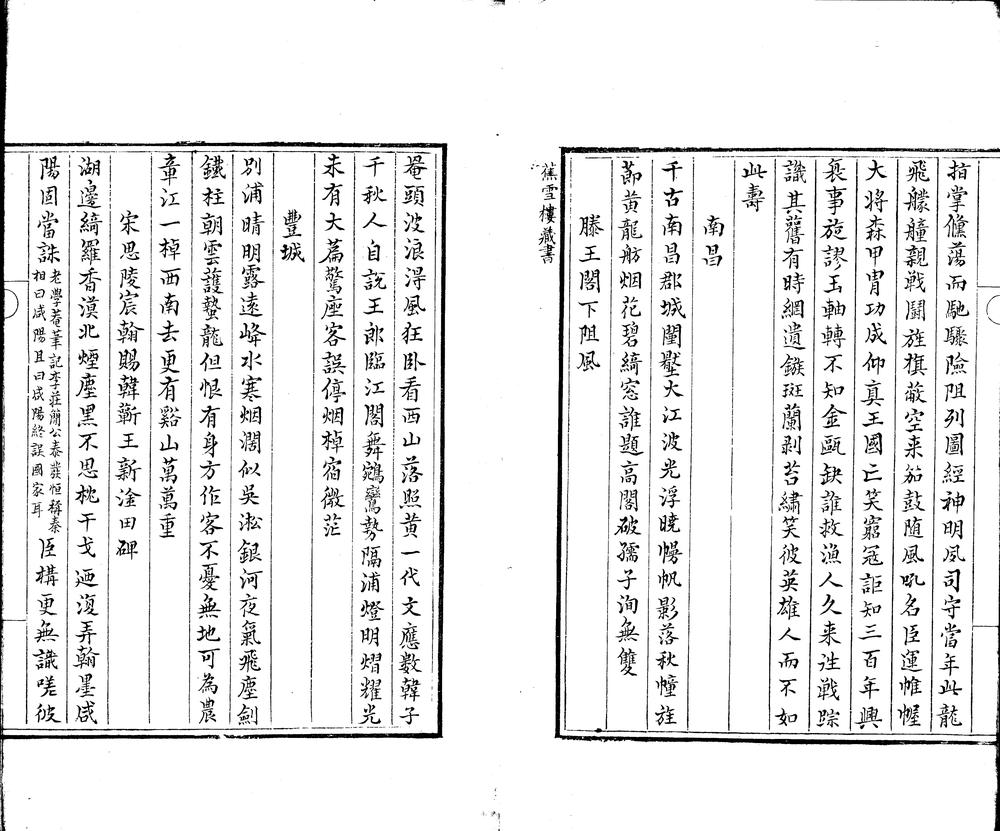 指掌儵蕩而馳驟險阻列圖經神明夙司守當年此龍
飛艨艟親戰鬭旌旗蔽空来笳鼓随風吼名臣運帷幄
大将森甲冑功成仰真王國亡笑窮冦詎知三百年興
衰事旋謬玉軸轉不知金甌缺誰救漁人久来徃戰踪
識其舊有時網遺鏃斑蘭剥苔繡笑彼英雄人而不如
此壽
南昌
千古南昌郡城闉壓大江波光浮曉幔帆影落秋幢旌
節黄龍舫烟花碧綺窓誰題高閣破孺子洵無雙
滕王閣下阻風
蕉雪樓藏書
菴頭波浪淂風狂卧看西山落照黄一代文應數韓子
千秋人自說王郎臨江閣舞鵷鸞勢隔浦燈明熠耀光
未有大篇驚座客誤停烟棹宿微茫
豐城
別浦晴明露遠峰水寒烟濶似吳淞銀河夜氣飛塵劍
鐵柱朝雲護蟄龍但恨有身方作客不憂無地可為農
章江一棹西南去更有谿山萬萬重
宋思陵宸翰賜韓蘄王新淦田碑
湖邊綺羅香漠北煙塵黑不思枕干戈迺復弄翰墨咸
陽固當誅老學菴筆記李莊簡公泰發恒稱秦相曰咸陽且曰咸陽終誤國家耳臣構更無識嗟彼